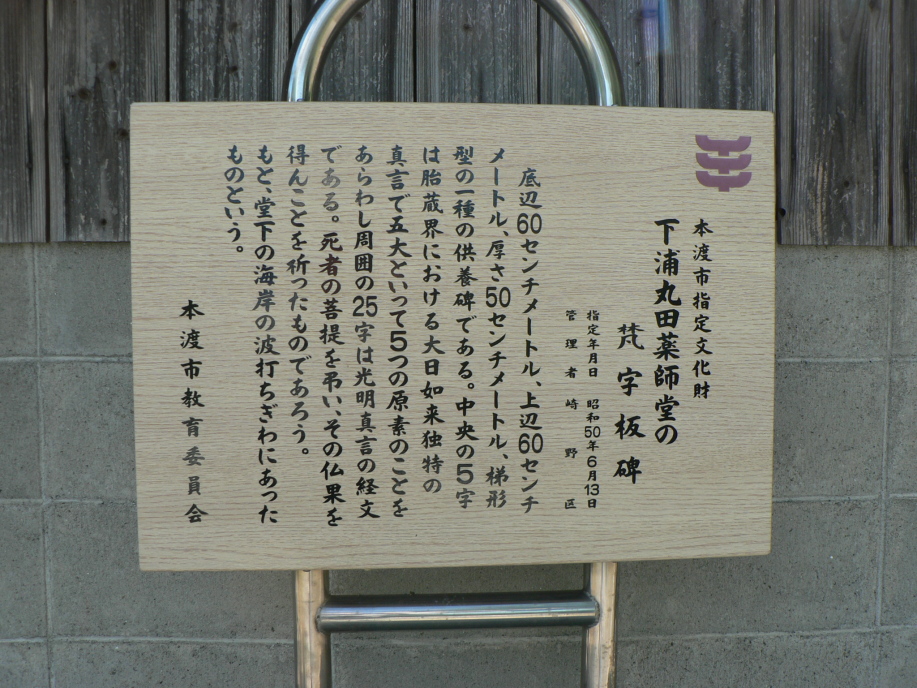 本渡市指定文化財
下浦丸田薬師堂の
梵字板碑
指定年月日 昭和50年6月13日
管理者 崎野区
底辺60センチメートル、上辺60センチ
メートル、厚さ50センチメートル、梯形
型の一種の供養碑である。中央の5字
は胎蔵界における大日如来独特の
真言で五大といって5つの原素のことを
あらわし周囲の25字は光明真言の経文
である。死者の菩提を弔い、その仏果を
得んことを祈ったものであろう。
もと、堂下の海岸の波打ちぎわにあった
ものという。
本渡市教育委員会